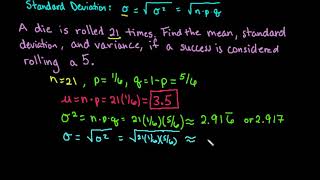 Standard Deviation: σ = √σ² = √n·p·q
A die is rolled 21 times. Find the mean, standard
deviation, and variance, if a success is considered
rolling a 5.
n=21, p=1/6, q=1-p=5/6
μ=n·p=21(1/6)=3.5
σ²=n·p·q=21(1/6)(5/6)≈2.916̅ or 2.917
σ=√σ²=√21(1/6)(5/6)≈